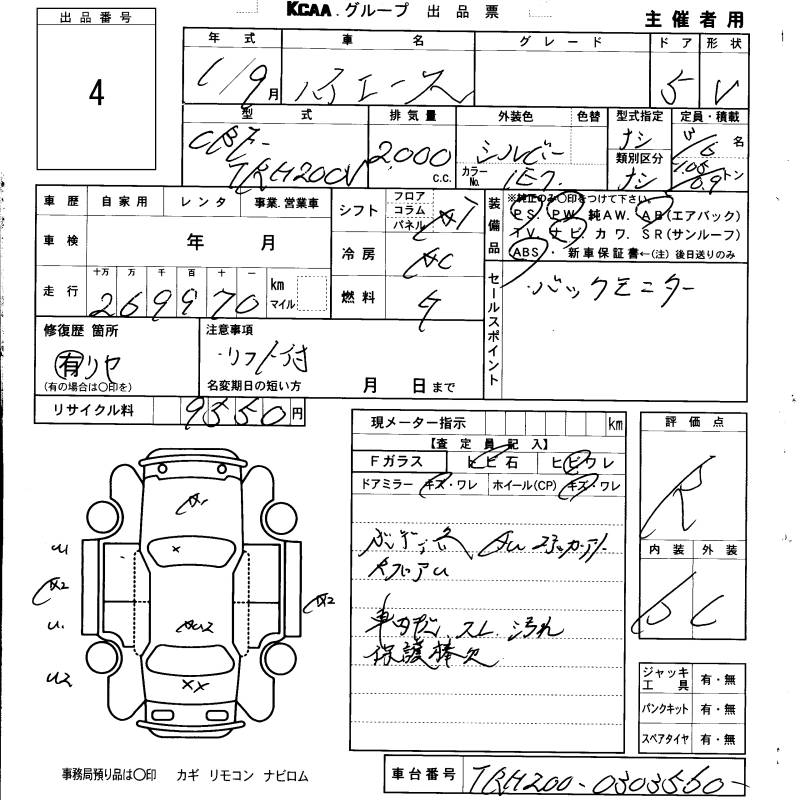 KCAA グループ 出品票
主催者用
出品番号
4
年式 車名 グレード ドア 形状
1/9月 ハイエース 5 V
型式 排気量 外装色 色替 型式指定 定員・積載
CBF-TRH200V 2,000 c.c. シルバー カラーNo. 1E7 ナシ 類別区分 ナシ 3/6名 1.05/0.9トン
車歴 自家用 レンタ 事業、営業車
車検 年 月
走行 十万 万 千 百 十 一 km マイル
269970
シフト フロア コラム パネル AT
冷房 AC
燃料 ガ
装備品
※純正のみ〇印をつけて下さい。
PS. PW. 純AW. AB(エアバック)
TV. ナビ. カワ. SR(サンルーフ)
ABS・ 新車保証書←(注)後日送りのみ
セールスポイント
バックモニター
修復歴 箇所
有 リヤ
(有の場合は〇印を)
注意事項
・リフト付
名変期日の短い方 月 日まで
リサイクル料 9350円
現メーター指示 km
【査定員記入】
Fガラス トビ石 ヒビワレ
ドアミラー キズ・ワレ ホイール(CP) キズ・ワレ
車内 スレ 汚れ
保護棒欠
評価点
R
内装 外装
D C
ジャッキ工具 有・無
パンクキット 有・無
スペアタイヤ 有・無
A1
U1
A2
A2
U1
AU2
U2
XX
事務局預り品は〇印 カギ リモコン ナビロム
車台番号 TRH200-0303550-